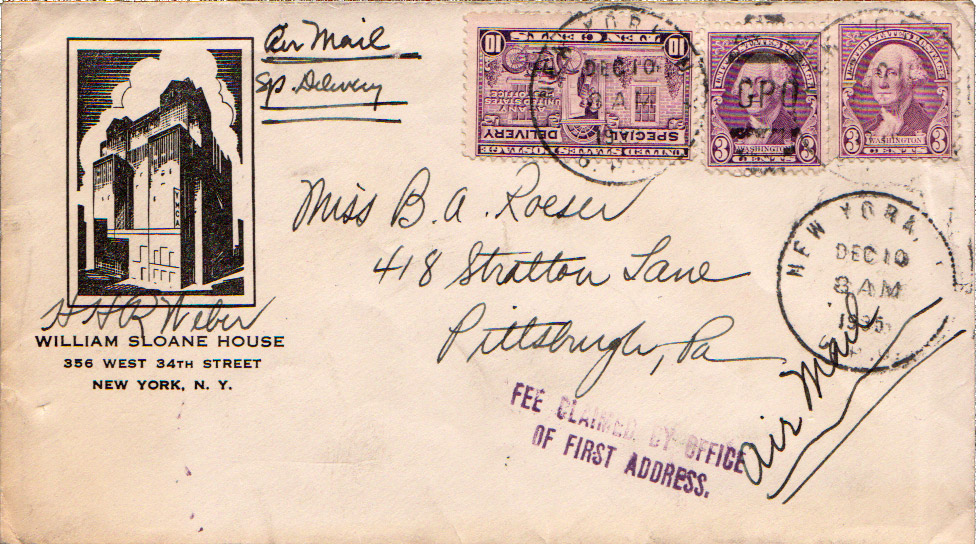 Air Mail
Sp. Delivery
YMCA
H H R Weber
WILLIAM SLOANE HOUSE
356 WEST 34TH STREET
NEW YORK, N. Y.
UNITED STATES POSTAGE
SPECIAL DELIVERY
UNITED STATES
POST OFFICE
10 10
YORK
DEC 10
8 AM
19
UNITED STATES POSTAGE
GPO
3 WASHINGTON 3
CENTS
UNITED STATES POSTAGE
3 WASHINGTON 3
CENTS
Miss B. A. Roeser
418 Stratton Lane
Pittsburgh, Pa
NEW YORK,
DEC 10
8 AM
1935
Air Mail
FEE CLAIMED BY OFFICE
OF FIRST ADDRESS.